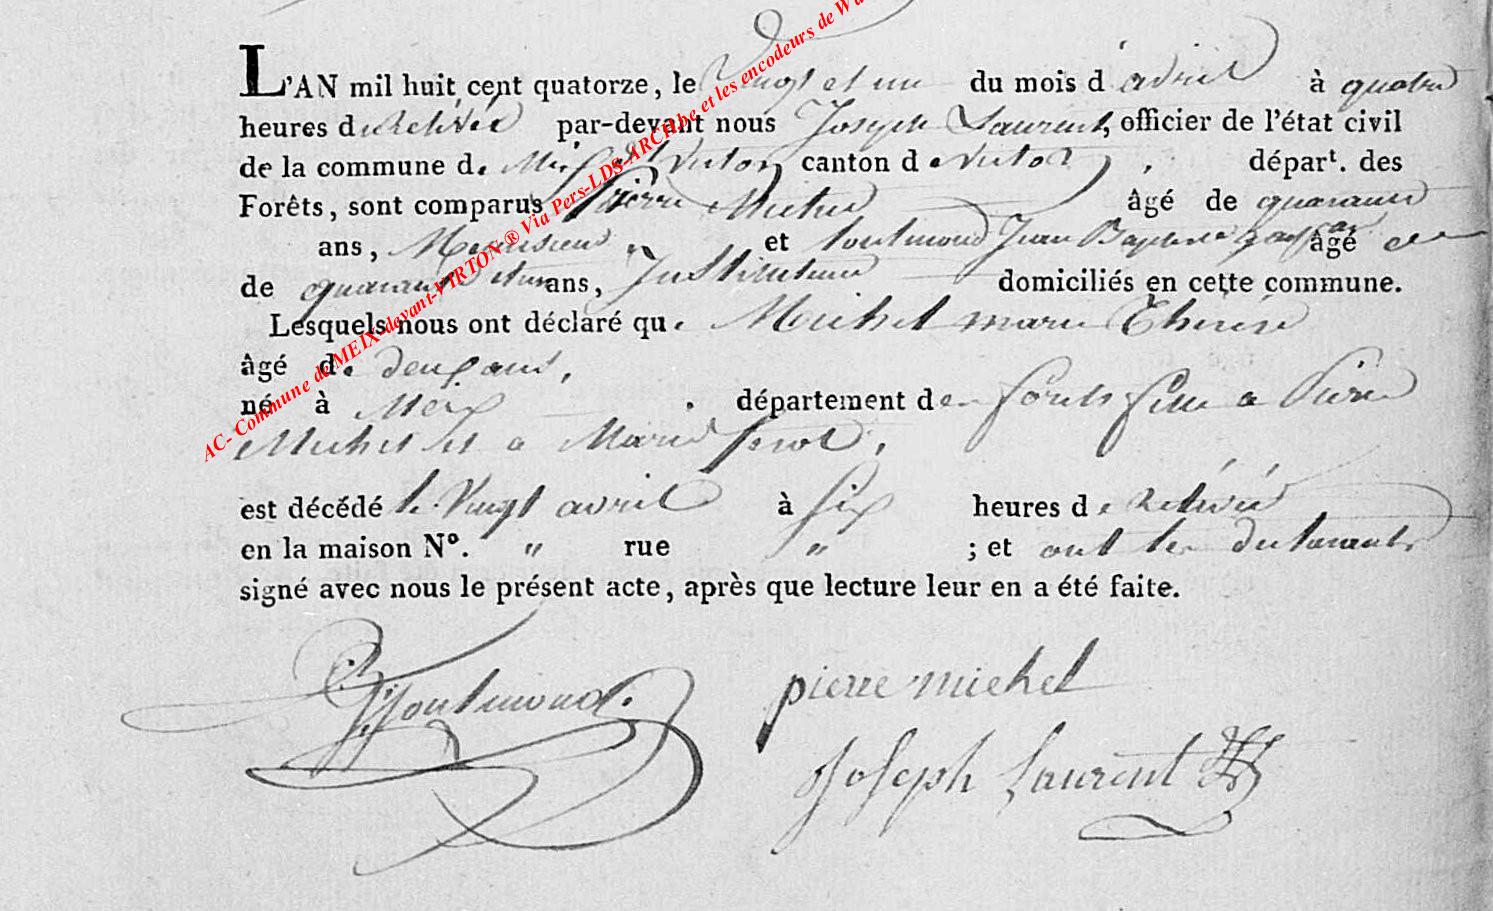 L'AN mil huit cent quatorze, le vingt et un du mois d'avril à quatre
heures de Relevée par-devant nous Joseph Laurent, officier de l'état civil
de la commune de Meix dt Virton canton de Virton, départ. des
Forêts, sont comparus Pierre Michel âgé de quarante
ans, et toutmond Jean Baptiste âgé
de quarante et un ans, Instituteur domiciliés en cette commune.
Lesquels nous ont déclaré que Michel marie Thérèse
âgé de deux ans,
né à Meix département des forêts fille a Pierre
Michel et a Marie
est décédé le vingt avril à six heures de Relevée
en la maison N°. " rue " ; et ont les declarants
signé avec nous le présent acte, après que lecture leur en a été faite.
pierre michel
Joseph Laurent
AC- Commune de MEIX-devant-VIRTON ® Via Pers-LDS-ARCH.be et les encodeurs de